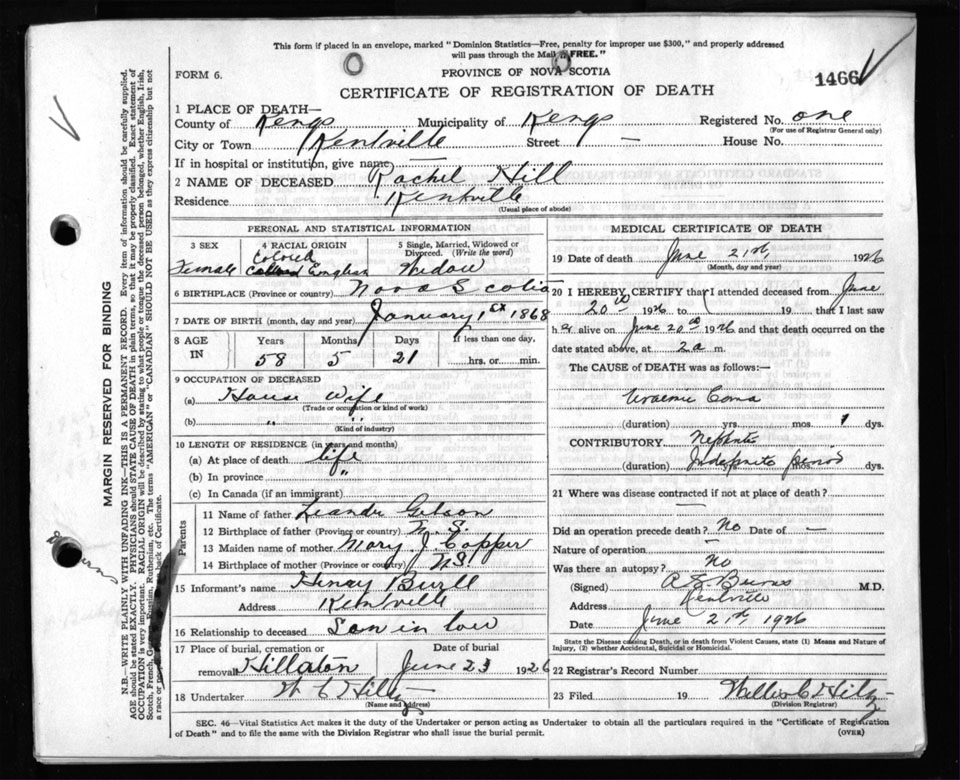 This form if placed in an envelope, marked "Dominion Statistics—Free, penalty for improper use $300," and properly addressed
will pass through the Mail FREE."
FORM 6.
PROVINCE OF NOVA SCOTIA
1466
CERTIFICATE OF REGISTRATION OF DEATH
1 PLACE OF DEATH—
County of Kings Municipality of Kings Registered No. one
(For use of Registrar General only)
City or Town Kentville Street — House No.
If in hospital or institution, give name —
2 NAME OF DECEASED Rachel Hill
Residence Kentville
(Usual place of abode)
PERSONAL AND STATISTICAL INFORMATION
3 SEX 4 RACIAL ORIGIN 5 Single, Married, Widowed or Divorced. (Write the word)
Female Colored English Widow
6 BIRTHPLACE (Province or country) Nova Scotia
7 DATE OF BIRTH (month, day and year) January 1st 1868
8 AGE IN Years Months Days If less than one day,
58 5 21 hrs. or min.
9 OCCUPATION OF DECEASED
(a) House Wife
(Trade or occupation or kind of work)
(b) " "
(Kind of industry)
10 LENGTH OF RESIDENCE (in years and months)
(a) At place of death life
(b) In province "
(c) In Canada (if an immigrant)
Parents
11 Name of father Leander Gibson
12 Birthplace of father (Province or country) N.S.
13 Maiden name of mother Mary J Copper
14 Birthplace of mother (Province or country) NS
15 Informant's name Henry Burll
Address Kentville
16 Relationship to deceased Son in law
17 Place of burial, cremation or removal Date of burial
Hillaton June 23 1926
18 Undertaker W C Hiltz
(Name and address)
MEDICAL CERTIFICATE OF DEATH
19 Date of death June 21st, 1926
(Month, day and year)
20 I HEREBY CERTIFY that I attended deceased from June
20th 1926 to 19 that I last saw
h er alive on June 20th 1926 and that death occurred on the
date stated above, at 2 a m.
The CAUSE of DEATH was as follows:—
Uraemic Coma
(duration) yrs. mos. 1 dys.
CONTRIBUTORY Nephritis
(duration) Indefinite period mos. dys.
21 Where was disease contracted if not at place of death?
—
Did an operation precede death? No Date of —
Nature of operation —
Was there an autopsy? No
(Signed) Burns M.D.
Address Kentville
Date June 21st, 1926
State the Disease causing Death, or in death from Violent Causes, state (1) Means and Nature of Injury, (2) whether Accidental, Suicidal or Homicidal.
22 Registrar's Record Number
23 Filed 19 Willis C Hiltz
(Division Registrar)
SEC. 46—Vital Statistics Act makes it the duty of the Undertaker or person acting as Undertaker to obtain all the particulars required in the "Certificate of Registration
of Death" and to file the same with the Division Registrar who shall issue the burial permit.
(OVER)
MARGIN RESERVED FOR BINDING
N.B.—WRITE PLAINLY WITH UNFADING INK—THIS IS A PERMANENT RECORD. Every item of information should be carefully supplied.
AGE should be stated EXACTLY. PHYSICIANS should STATE CAUSE OF DEATH in plain terms, so that it may be properly classified. Exact statement of
OCCUPATION is very important. RACIAL ORIGIN will be described by stating to what people or tongue the deceased person belonged, whether English, Irish,
Scotch, French, Russian, Ruthenian, etc. The terms "AMERICAN" or "CANADIAN" SHOULD NOT BE USED as they express citizenship but not
a race or back of Certificate.